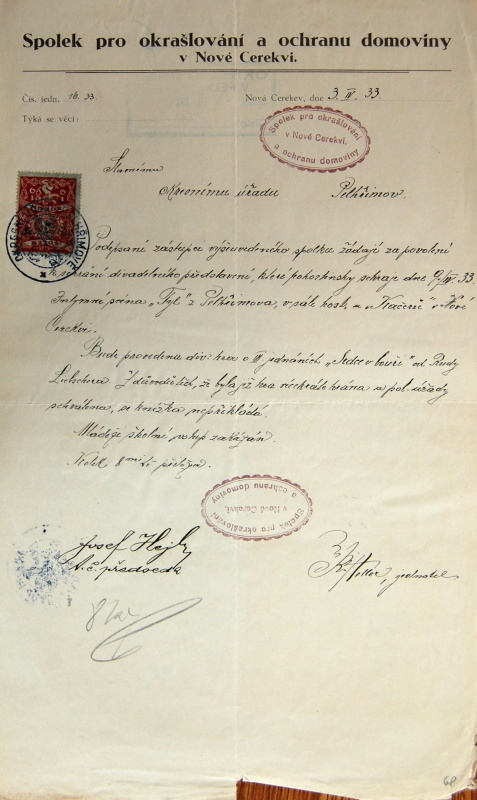 Spolek pro okrašlování a ochranu domoviny
v Nové Cerekvi.
Čís. jedn. 16. 33. Nová Cerekev, dne 3. IV. 33.
Týká se věci:
Spolek pro okrašlování
v Nové Cerekvi.
a ochranu domoviny
Slavnému
Okresnímu úřadu Pelhřimov.
Podepsané zástupce výšeuvedeného spolku žádají za povolení
k sehrání divadelního představení, které pohostinsky sehraje dne 9./IV. 33.
Intymní scéna „Tyl" z Pelhřimova, v sále host. u „Kačerů" v Nové
Cerekvi.
Bude provedena div. hra o III jednáních „Srdce v bouři" od Rudy
z důvodu těch, že byla již hra několikráte hrána a pol. úřady
schválena, se knížka nepřekládá.
Mládeži školní vstup zakázán.
Spolek pro okrašlování
v Nové Cerekvi.
a ochranu domoviny
Josef Hejl
t. č. předseda
jednatel